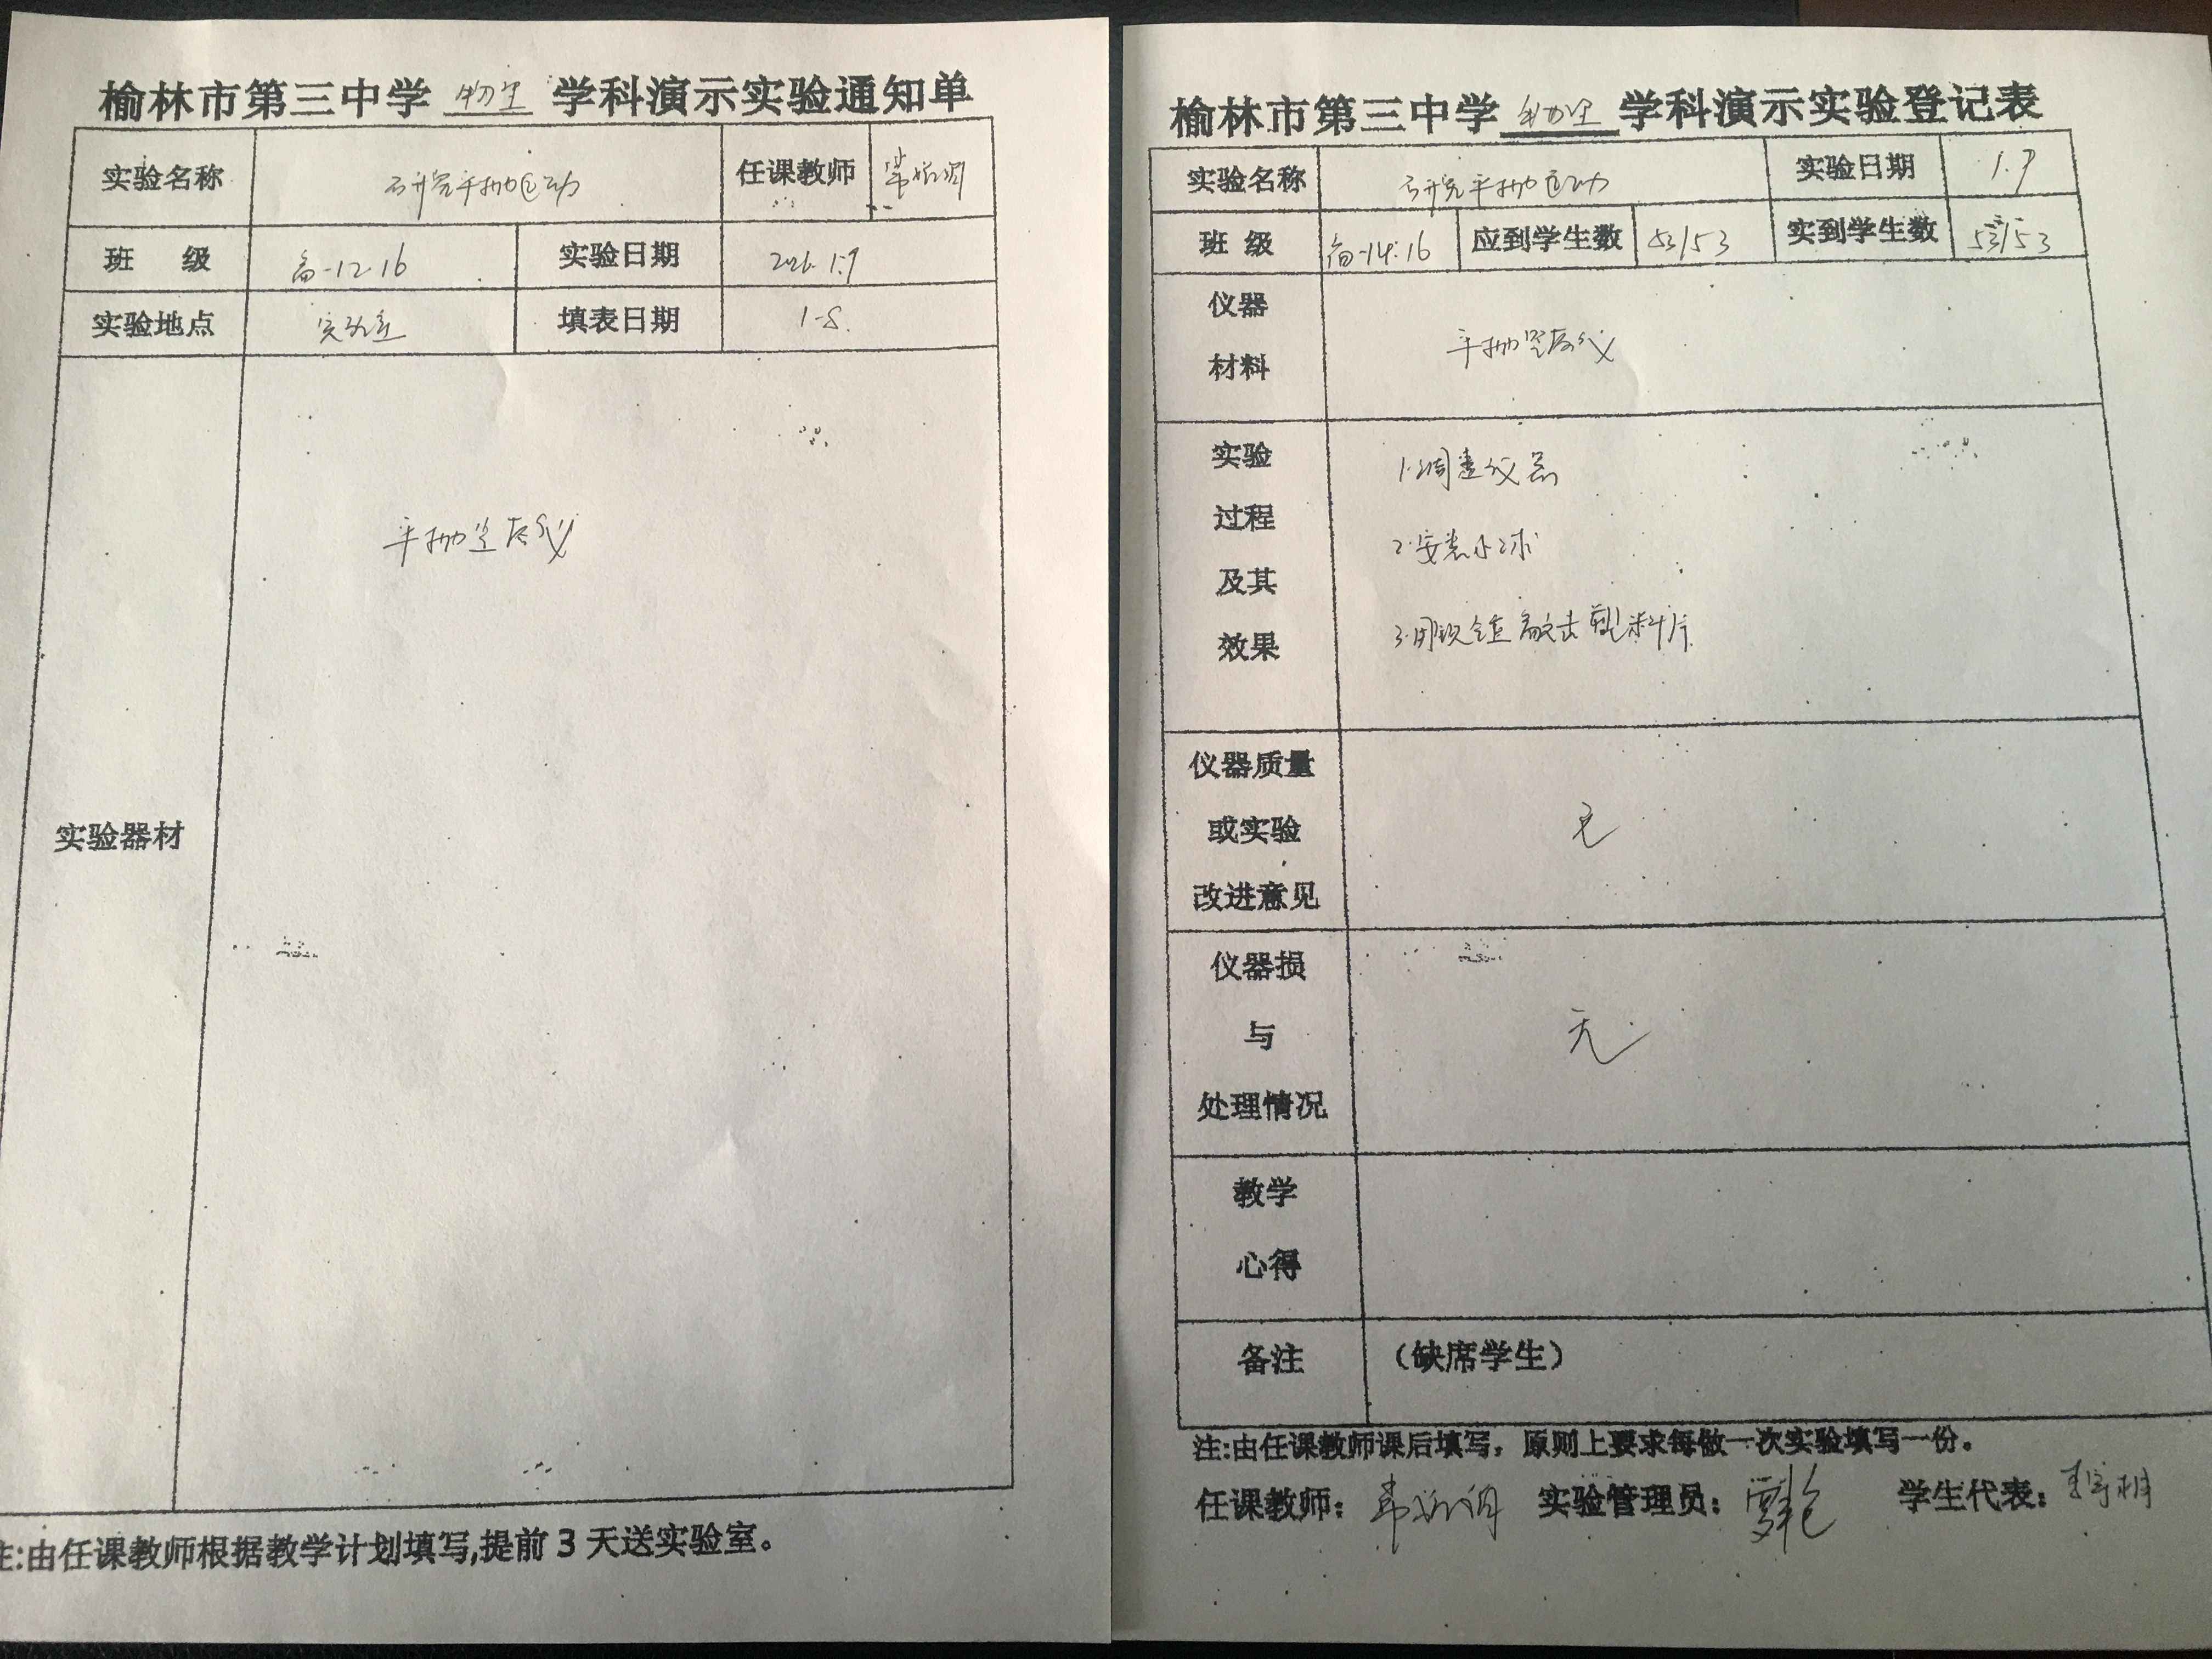 榆林市第三中学 物理 学科演示实验通知单
实验名称 研究平抛运动 任课教师
班 级 高一12.16 实验日期 1.9
实验地点 实验室 填表日期 1-8.
实验器材 平抛竖落仪
注:由任课教师根据教学计划填写,提前3天送实验室。
榆林市第三中学 物理 学科演示实验登记表
实验名称 研究平抛运动 实验日期 1.9
班 级 高一14.16 应到学生数 53/53 实到学生数 53/53
仪器
材料
平抛竖落仪
实验
过程
及其
效果
1.调整仪器
2.安装小球
3.用 敲击塑料片
仪器质量
或实验
改进意见
无
仪器损
与
处理情况
无
教学
心得
备注 （缺席学生）
注:由任课教师课后填写，原则上要求每做一次实验填写一份。
任课教师： 实验管理员： 学生代表：